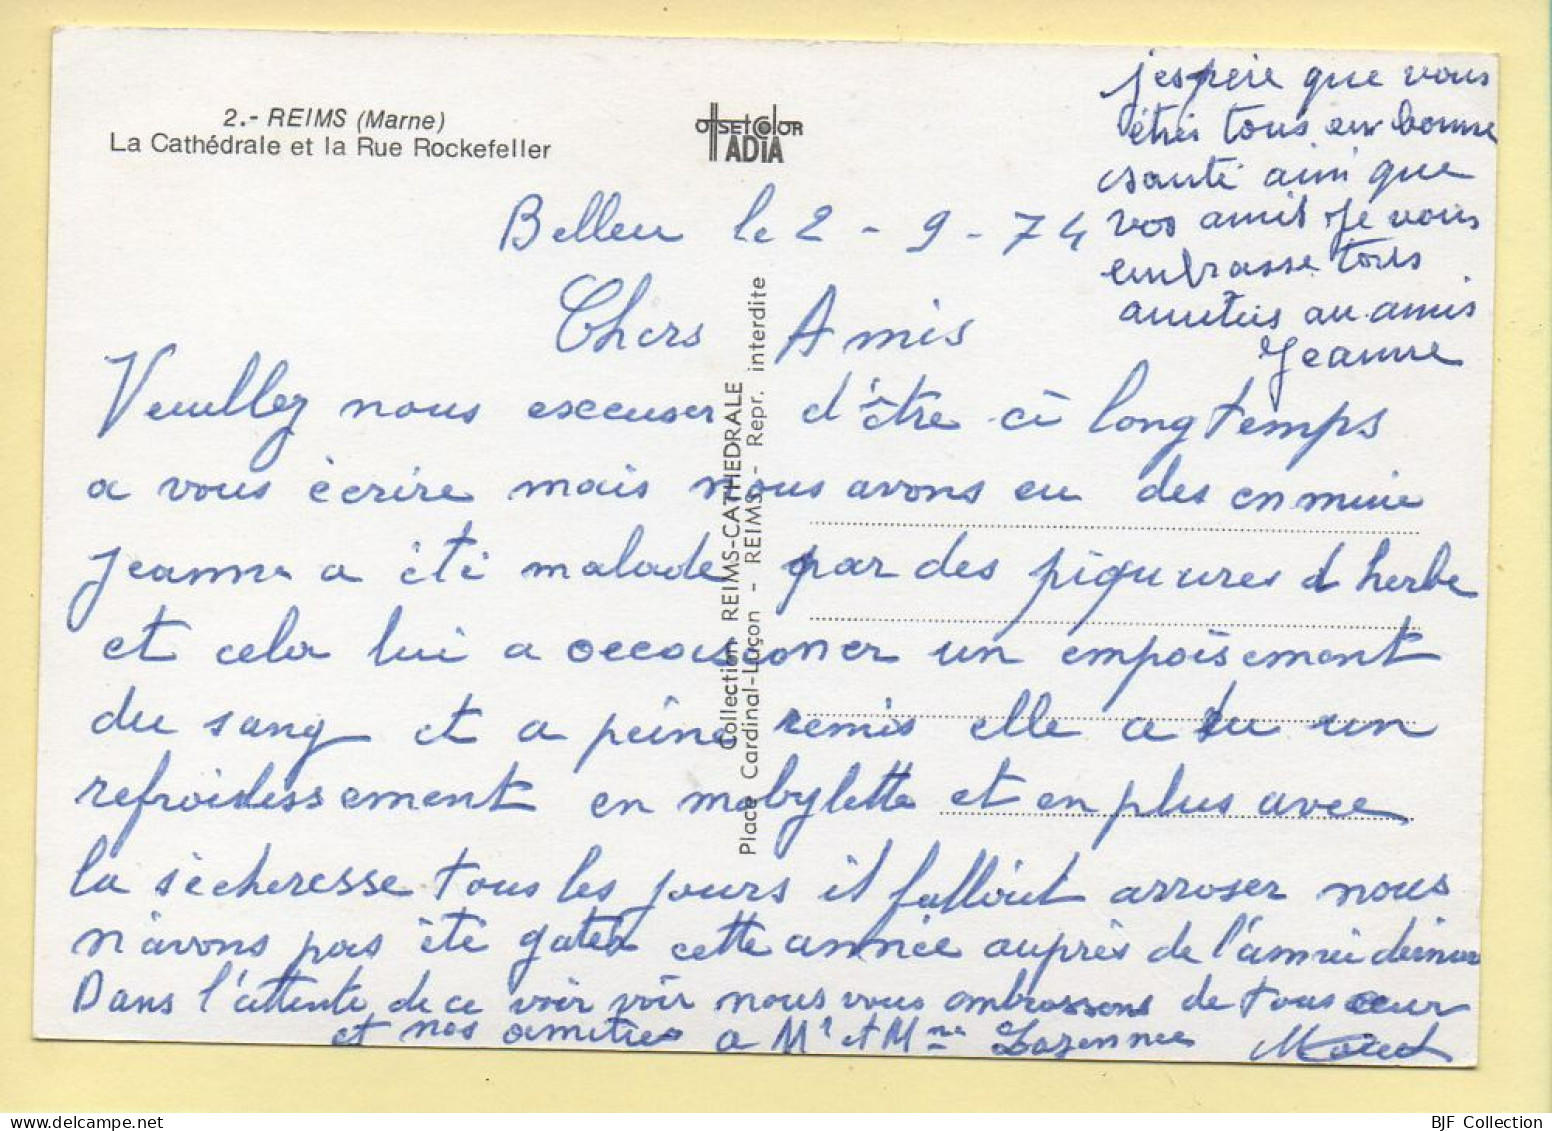 2.- REIMS (Marne)
La Cathédrale et la Rue Rockefeller
OffSET COLOR
ADIA
Belleu le 2 - 9 - 74
Chers Amis
Veuillez nous excuser d'être ci longtemps
a vous écrire mais nous avons eu des enmuie
Jeanne a été malade par des piquures d herbe
et cela lui a occasioner un empoisement
du sang et a peine remis elle a eu un
refroidissement en mobylette et en plus avec
la sècheresse tous les jours il falloit arroser nous
n'avons pas été gater cette année auprès de l'année
Dans l'attente de ce voir nous vous ombrassons de tous cœur
et nos amities a Mr et Mme
j'espère que vous
êtes tous en bonne
santé ainsi que
vos amis Je vous
embrasse tous
amitiés au amis
Jeanne
Collection REIMS-CATHEDRALE
Place Cardinal-Luçon - REIMS - Repr. interdite
BJF Collection